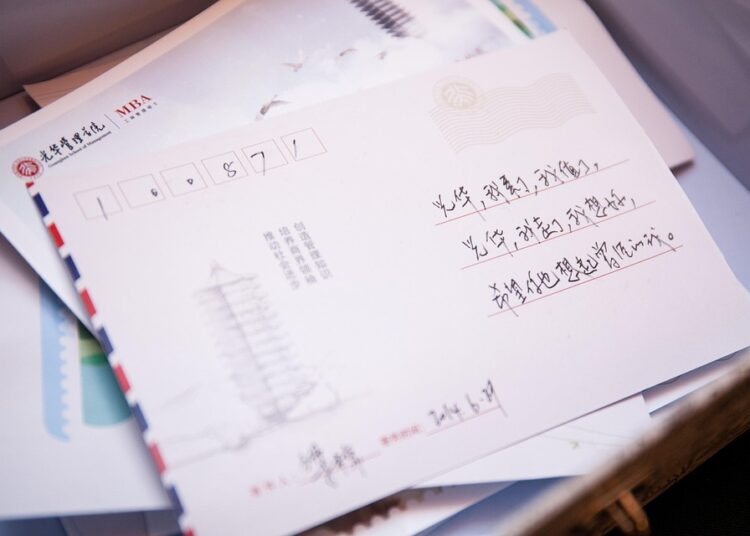 光华管理学院
Guanghua School of Management
MBA
工商管理硕士
100871
创造管理知识
培养商界领袖
推动社会进步
光华，我来了，我值了，
光华，我走了，我想你，
希望你也想起曾经的我。
寄件人：
寄件时间：2014.6.29